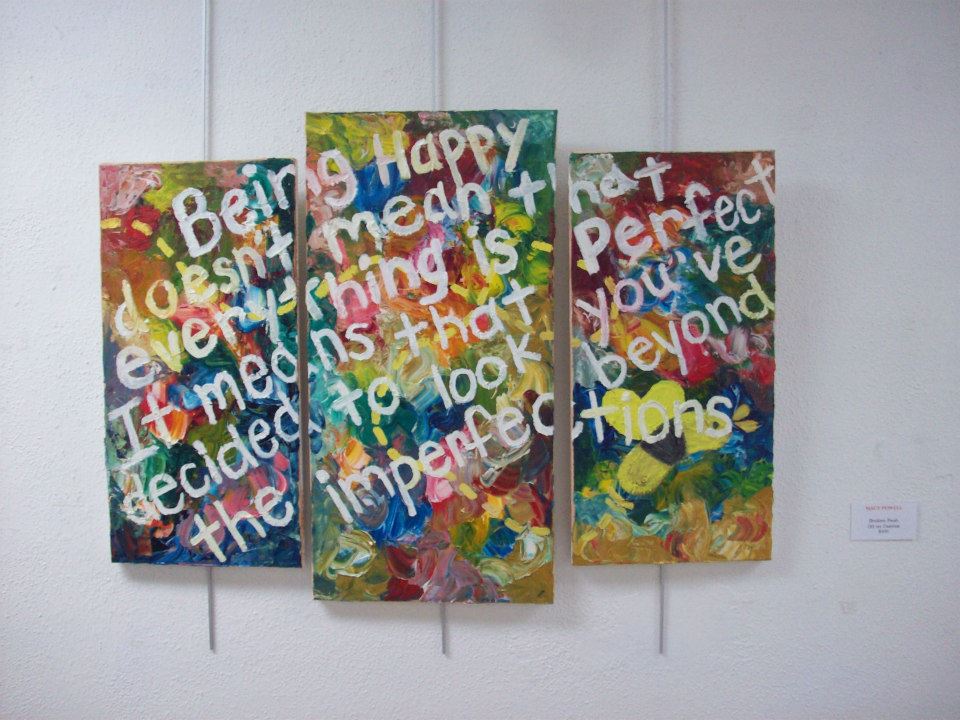 Being Happy
doesn't mean that
everything is Perfect
It means that you've
decided to look beyond
the imperfections
MACY POWELL
Oil on Canvas